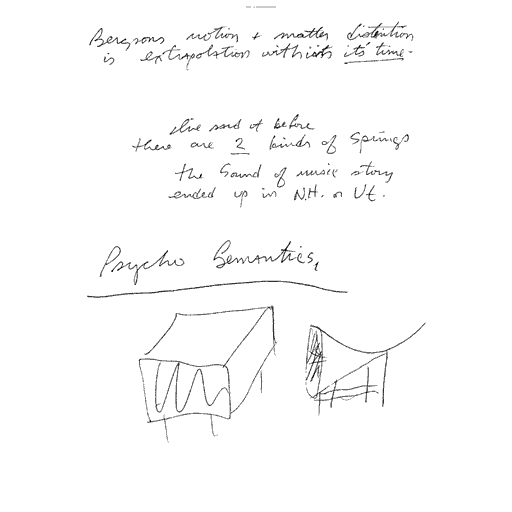 Bergsons motion + matter distention
is extrapolation within its time -
I've said it before
there are 2 kinds of springs
the Sound of music story
ended up in N.H. or Vt.
Psycho Semantics,